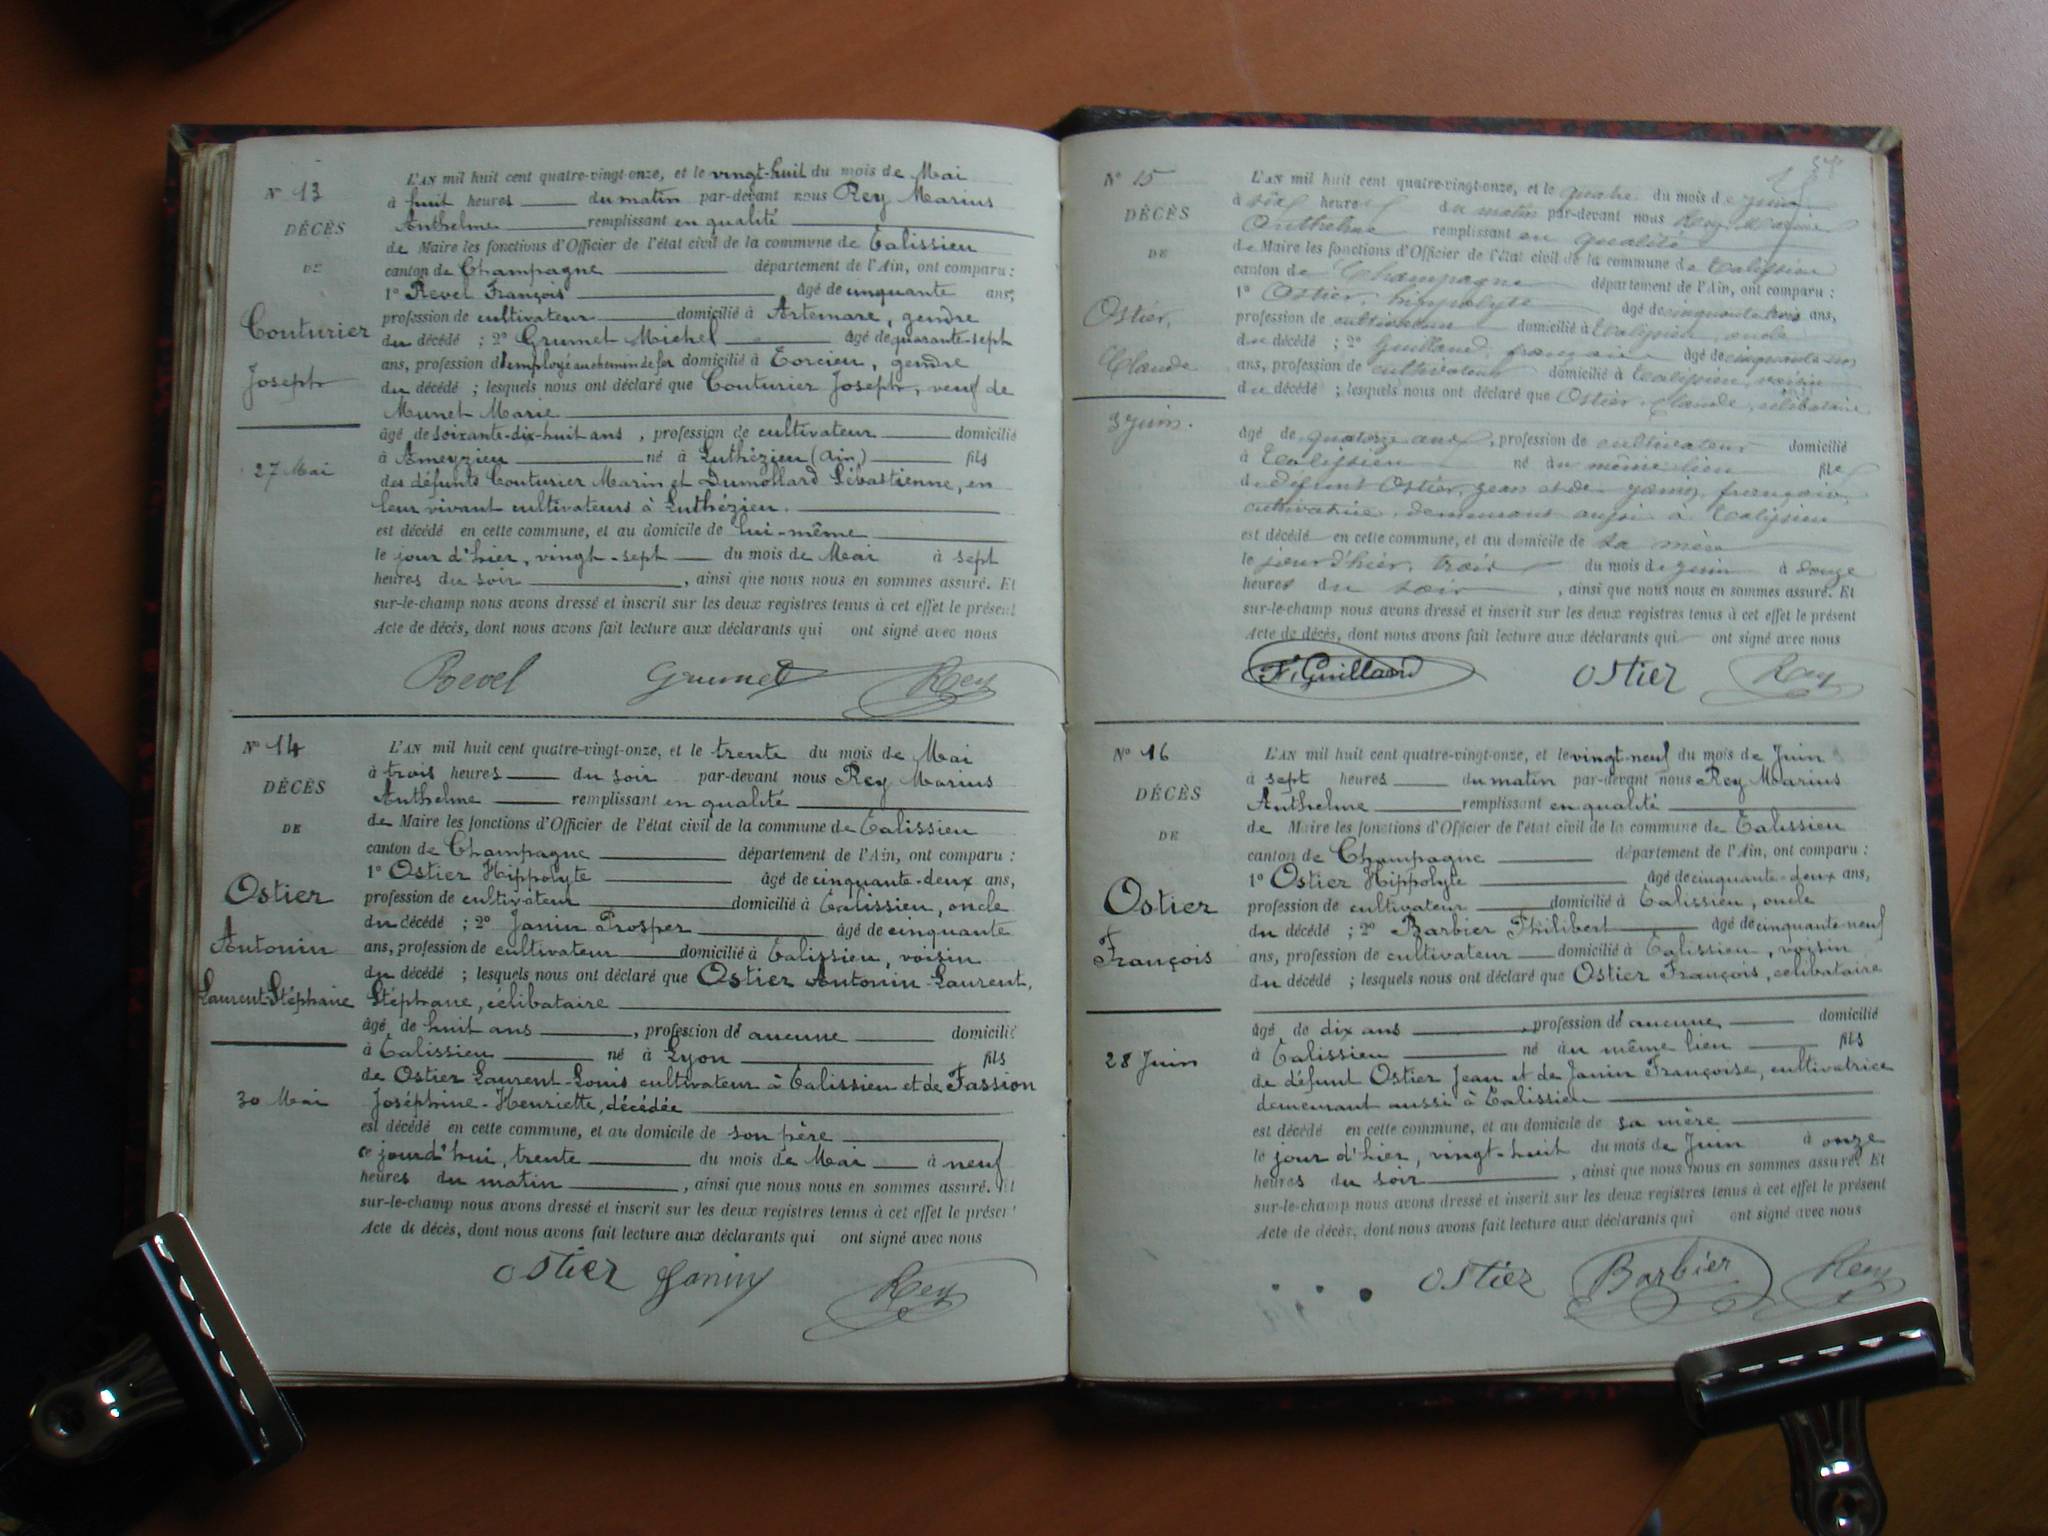 N° 13
DÉCÈS
DE
Couturier
Joseph
27 Mai
L'AN mil huit cent quatre-vingt-onze, et le vingt-huit du mois de Mai
à huit heures du matin par-devant nous Rey Marius
Anthelme remplissant en qualité
de Maire les fonctions d'Officier de l'état civil de la commune de Talissieu
canton de Champagne département de l'Ain, ont comparu :
1° Revel François âgé de cinquante ans,
profession de cultivateur domicilié à Artemare, gendre
du décédé ; 2° Grumet Michel âgé de quarante-sept
ans, profession d'employé au chemin de fer domicilié à Torcieu, gendre
du décédé ; lesquels nous ont déclaré que Couturier Joseph, veuf de
Munet Marie
âgé de soixante-dix-huit ans, profession de cultivateur domicilié
à Ameyzieu né à Luthézieu (Ain) fils
des défunts Couturier Marin et Dumollard Sébastienne, en
leur vivant cultivateurs à Luthézieu.
est décédé en cette commune, et au domicile de lui-même
le jour d'hier, vingt-sept du mois de Mai à sept
heures du soir, ainsi que nous nous en sommes assuré. Et
sur-le-champ nous avons dressé et inscrit sur les deux registres tenus à cet effet le présent
Acte de décès, dont nous avons fait lecture aux déclarants qui ont signé avec nous
Revel Grumet Rey
N° 14
DÉCÈS
DE
Ostier
Antonin
Laurent-Stéphane
30 Mai
L'AN mil huit cent quatre-vingt-onze, et le trente du mois de Mai
à trois heures du soir par-devant nous Rey Marius
Anthelme remplissant en qualité
de Maire les fonctions d'Officier de l'état civil de la commune de Talissieu
canton de Champagne département de l'Ain, ont comparu :
1° Ostier Hippolyte âgé de cinquante-deux ans,
profession de cultivateur domicilié à Talissieu, oncle
du décédé ; 2° Janin Prosper âgé de cinquante
ans, profession de cultivateur domicilié à Talissieu, voisin
du décédé ; lesquels nous ont déclaré que Ostier Antonin-Laurent,
Stéphane, célibataire
âgé de huit ans, profession dé aucune domicilié
à Talissieu né à Lyon fils
de Ostier Laurent-Louis cultivateur à Talissieu et de Fassion
Joséphine-Henriette, décédée
est décédé en cette commune, et au domicile de son père
ce jourd'hui, trente du mois de Mai à neuf
heures du matin, ainsi que nous nous en sommes assuré. Et
sur-le-champ nous avons dressé et inscrit sur les deux registres tenus à cet effet le présent
Acte de décès, dont nous avons fait lecture aux déclarants qui ont signé avec nous
Ostier Janin Rey
N° 15
DÉCÈS
DE
Ostier,
Claude
3 juin.
L'AN mil huit cent quatre-vingt-onze, et le quatre du mois de juin
à six heures du matin par-devant nous Rey Marius
Anthelme remplissant en qualité
de Maire les fonctions d'Officier de l'état civil de la commune de Talissieu
canton de Champagne département de l'Ain, ont comparu :
1° Ostier, hippolyte âgé de cinquante trois ans,
profession de cultivateur domicilié à Talissieu, oncle
du décédé ; 2° Guilland, françois âgé de cinquante
ans, profession de cultivateur domicilié à Talissieu, voisin
du décédé ; lesquels nous ont déclaré que Ostier, Claude, célibataire
âgé de quatorze ans, profession de cultivateur domicilié
à Talissieu né au même lieu fils
de défunt Ostier, jean et de janin, françoise,
cultivatrice, demeurant aussi à Talissieu
est décédé en cette commune, et au domicile de sa mère
le jour d'hier, trois du mois de juin à douze
heures du soir, ainsi que nous nous en sommes assuré. Et
sur-le-champ nous avons dressé et inscrit sur les deux registres tenus à cet effet le présent
Acte de décès, dont nous avons fait lecture aux déclarants qui ont signé avec nous
F. Guilland Ostier Rey
N° 16
DÉCÈS
DE
Ostier
François
28 Juin
L'AN mil huit cent quatre-vingt-onze, et le vingt-neuf du mois de Juin
à sept heures du matin par-devant nous Rey Marius
Anthelme remplissant en qualité
de Maire les fonctions d'Officier de l'état civil de la commune de Talissieu
canton de Champagne département de l'Ain, ont comparu :
1° Ostier Hippolyte âgé de cinquante-deux ans,
profession de cultivateur domicilié à Talissieu, oncle
du décédé ; 2° Barbier Philibert âgé de cinquante-neuf
ans, profession de cultivateur domicilié à Talissieu, voisin
du décédé ; lesquels nous ont déclaré que Ostier François, célibataire
âgé de dix ans, profession dé aucune domicilié
à Talissieu né au même lieu fils
de défunt Ostier Jean et de Janin Françoise, cultivatrice
demeurant aussi à Talissieu
est décédé en cette commune, et au domicile de sa mère
le jour d'hier, vingt-huit du mois de Juin à onze
heures du soir, ainsi que nous nous en sommes assuré. Et
sur-le-champ nous avons dressé et inscrit sur les deux registres tenus à cet effet le présent
Acte de décès, dont nous avons fait lecture aux déclarants qui ont signé avec nous
Ostier Barbier Rey